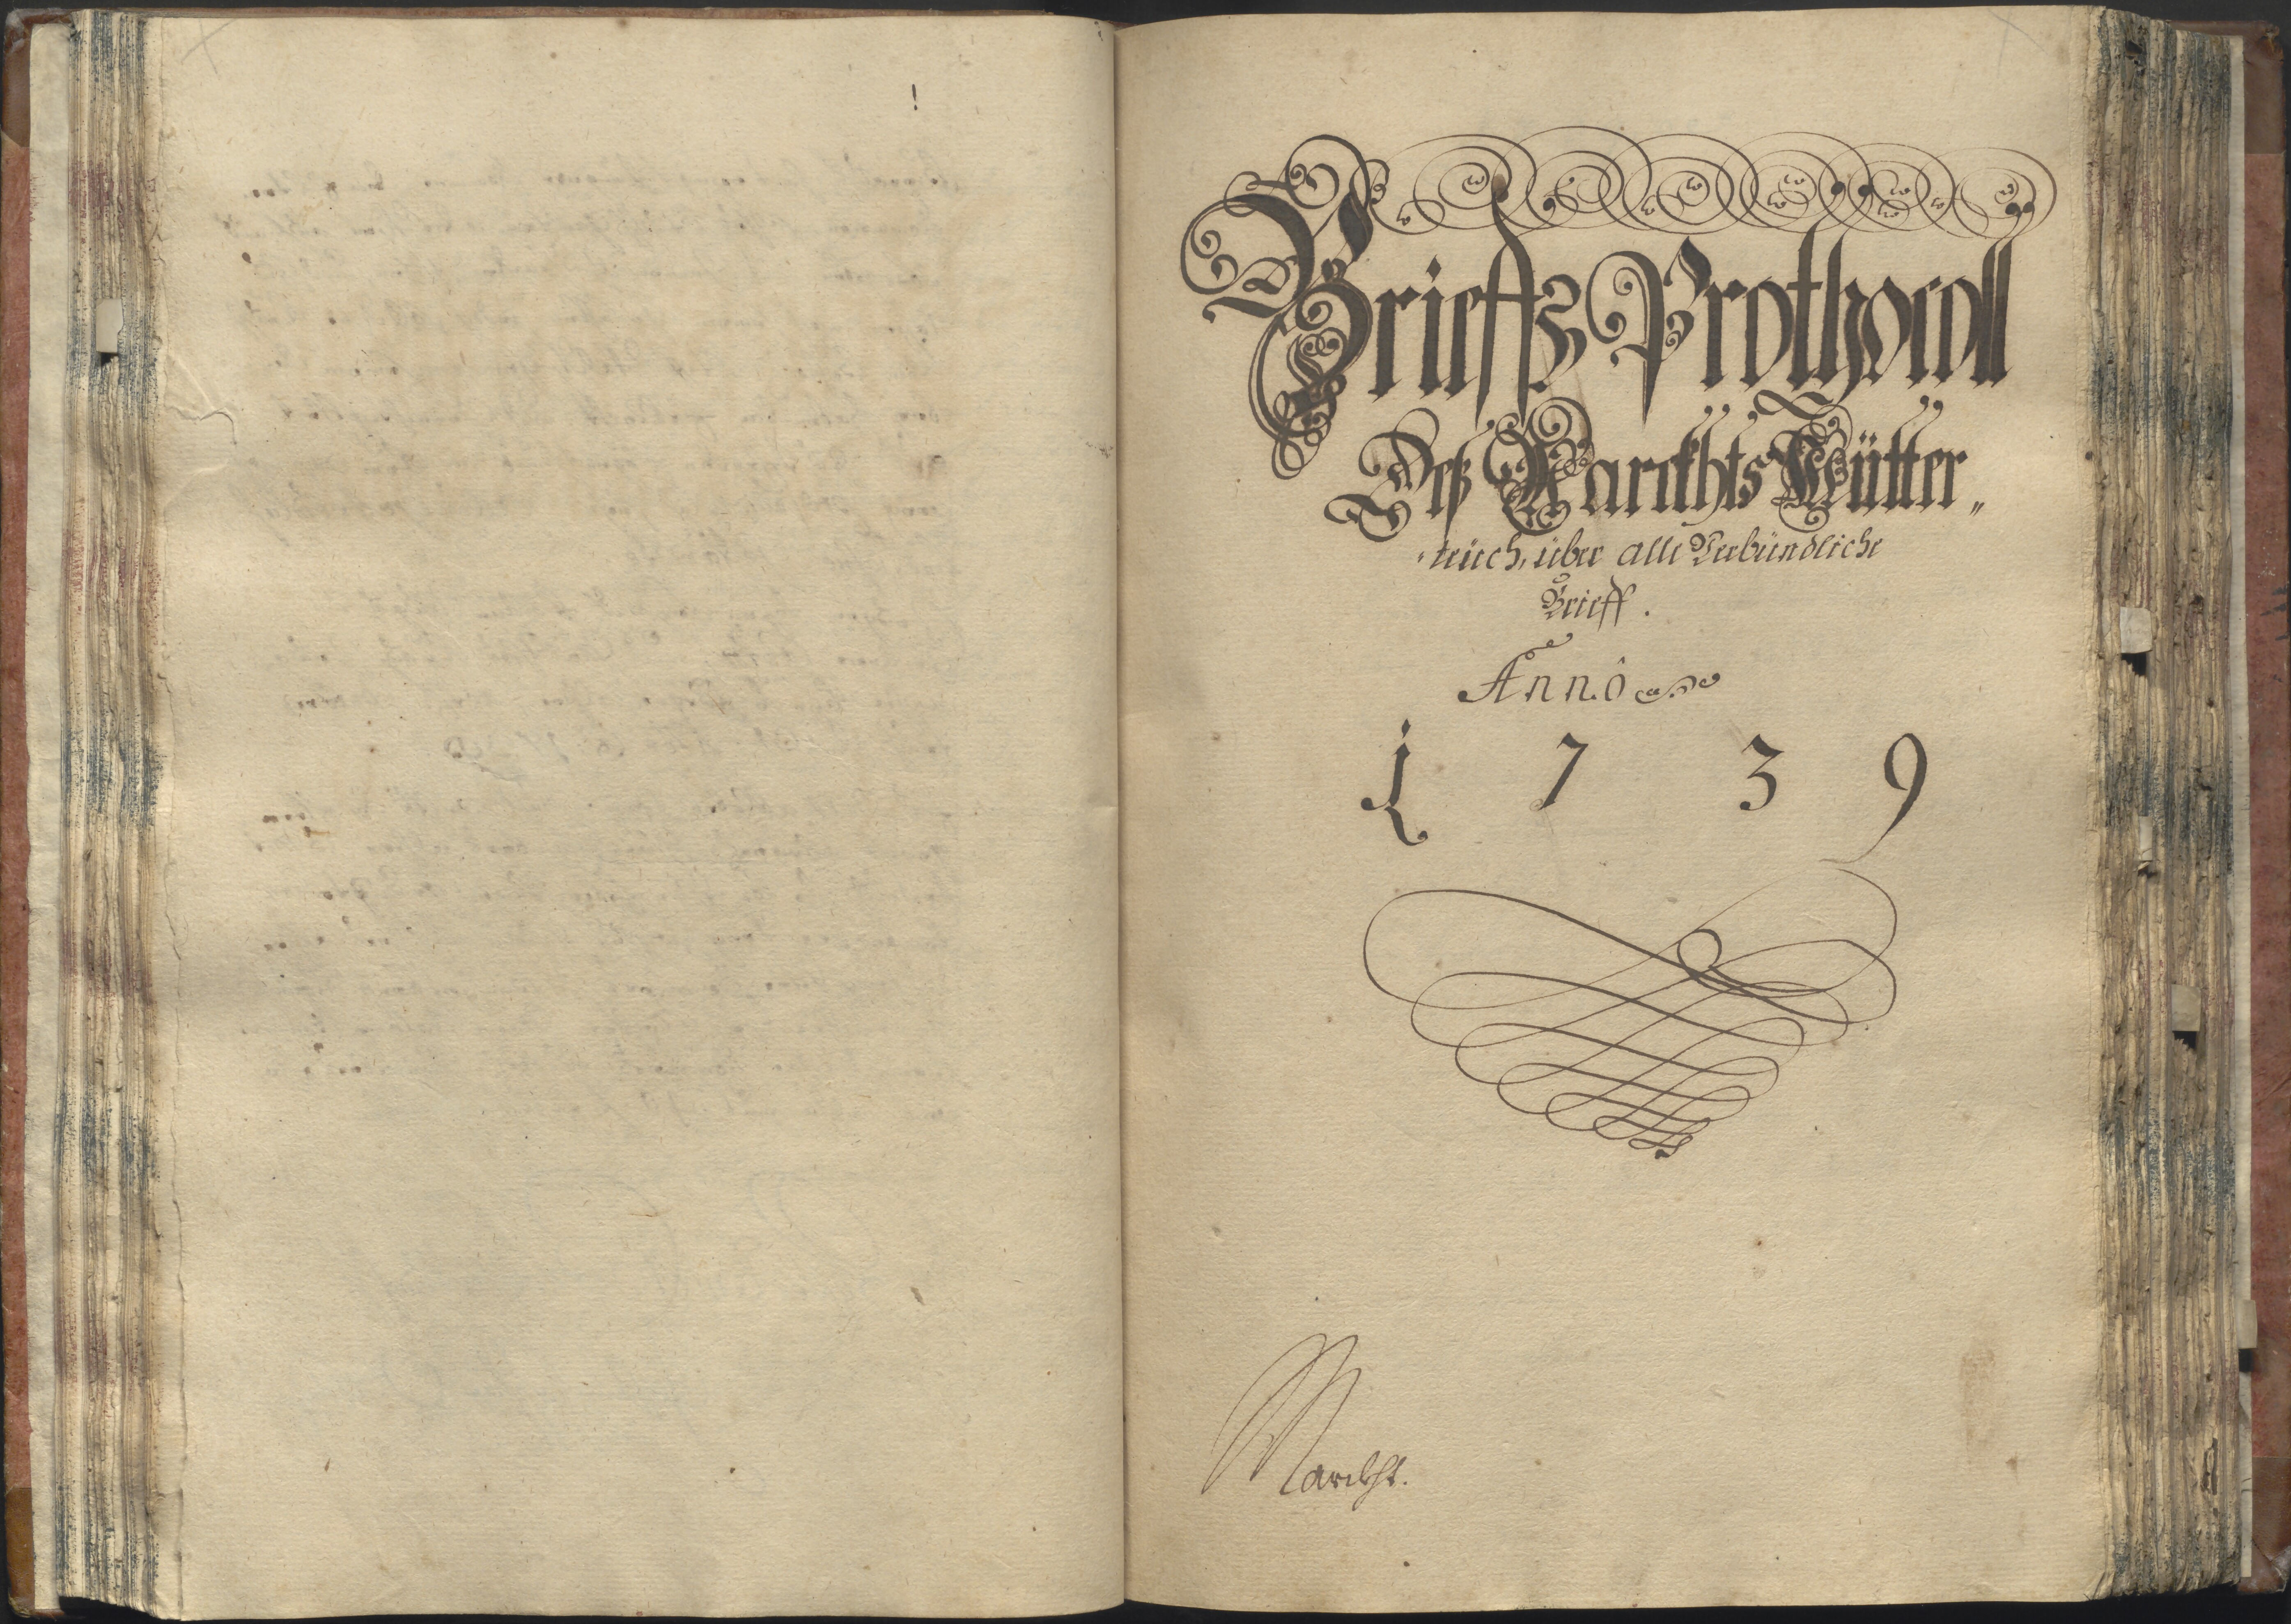 Brieffs Prothocoll
Deß Marckhts Kütter„
„teüch, über alle Verbündliche
Brieff.
Anno
1739
Marckht.